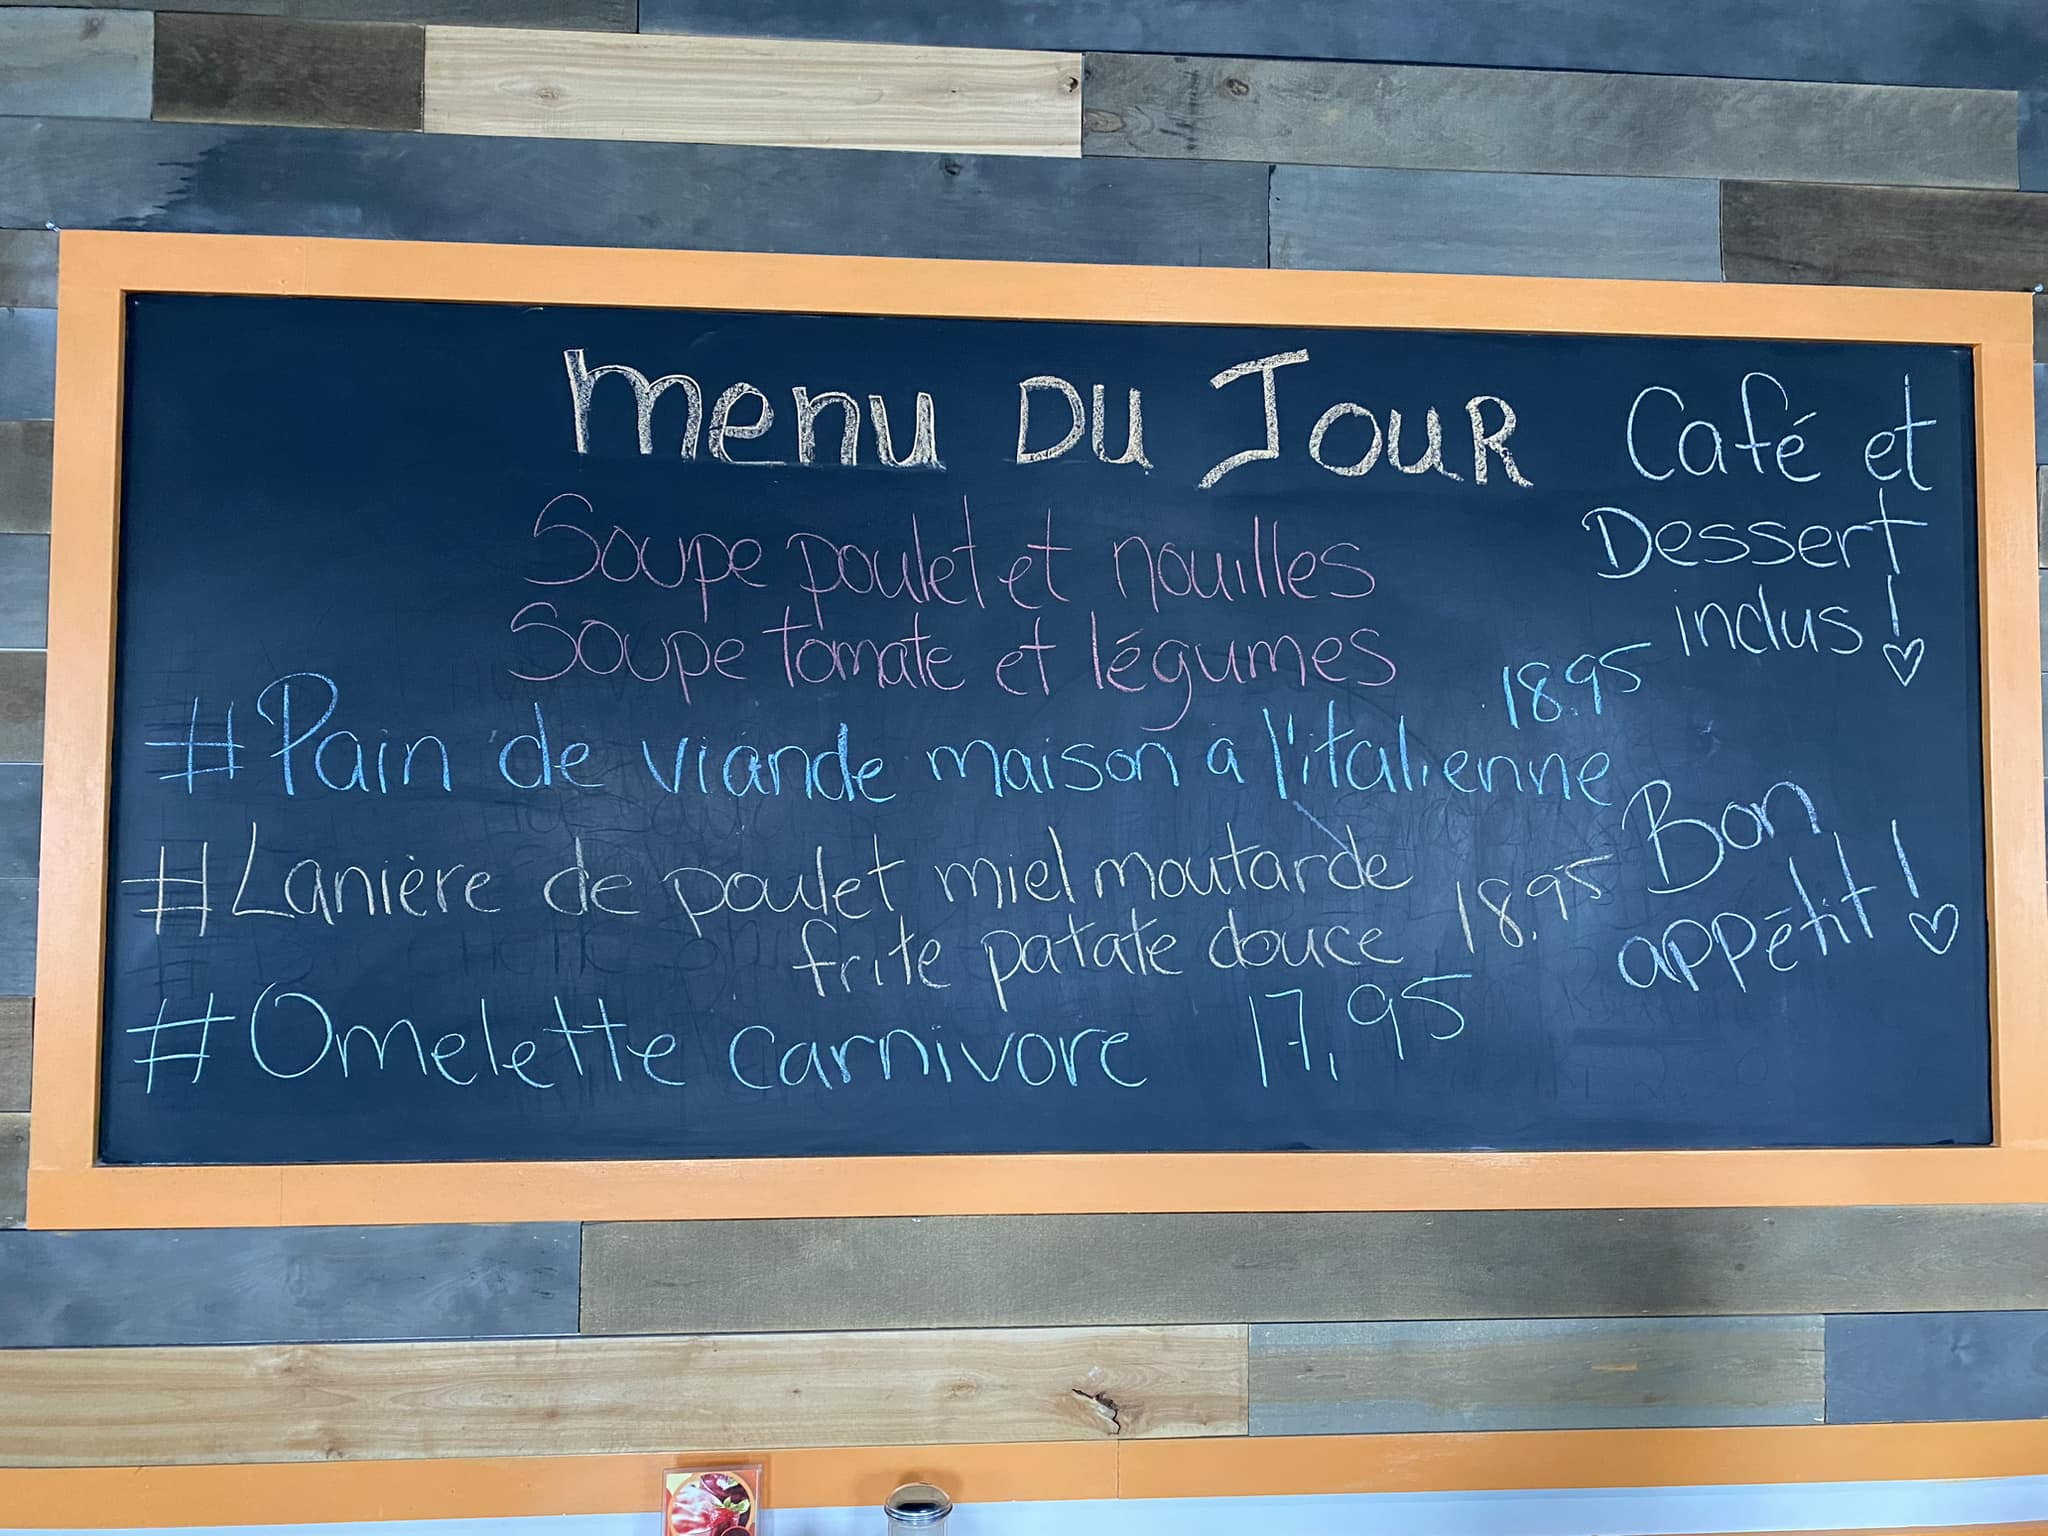 Menu Du Jour
Soupe poulet et nouilles
Soupe tomate et légumes
# Pain de viande maison a l'italienne 18.95
# Lanière de poulet miel moutarde
frite patate douce 18.95
# Omelette carnivore 17,95
Café et
Dessert
inclus !
Bon
appétit !